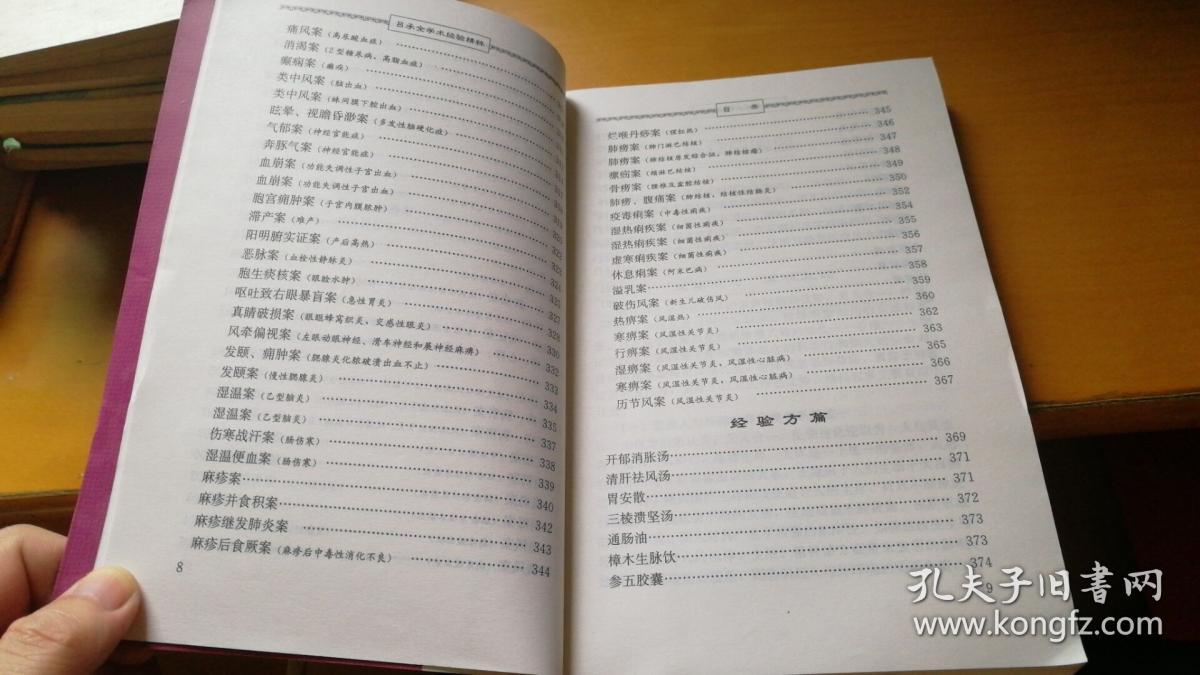 吕承全学术经验精粹
痛风案（高尿酸血症）
消渴案（2型糖尿病、高脂血症）
癫痫案（癫痫）
类中风案（脑出血）
类中风案（蛛网膜下腔出血）
眩晕、视瞻昏渺案（多发性脑硬化症）
气郁案（神经官能症）
奔豚气案（神经官能症）
血崩案（功能失调性子宫出血）
血崩案（功能失调性子宫出血）
胞宫痈肿案（子宫内膜脓肿）
滞产案（难产）
阳明腑实证案（产后高热）
恶脉案（血栓性静脉炎）
胞生痰核案（眼睑水肿） 324
呕吐致右眼暴盲案（急性胃炎） 327
真睛破损案（眼眶蜂窝织炎、交感性眼炎）
风牵偏视案（左眼动眼神经、滑车神经和展神经麻痹） 330
发颐、痈肿案（腮腺炎化脓破溃出血不止） 332
发颐案（慢性腮腺炎） 332
湿温案（乙型脑炎） 334
湿温案（乙型脑炎） 335
伤寒战汗案（肠伤寒） 337
湿温便血案（肠伤寒） 338
麻疹案 339
麻疹并食积案 340
麻疹继发肺炎案 342
麻疹后食厥案（麻疹后中毒性消化不良） 343
344
8
目 录
烂喉丹痧案（猩红热） 345
肺痨案（肺门淋巴结核） 346
肺痨案（肺结核原发综合征、肺结核瘤） 347
瘰疬案（颈淋巴结核） 348
骨痨案（腰椎及盆腔结核） 349
肺痨、腹痛案（肺结核、结核性结肠炎） 350
疫毒痢案（中毒性痢疾） 352
湿热痢疾案（细菌性痢疾） 354
湿热痢疾案（细菌性痢疾） 355
虚寒痢疾案（细菌性痢疾） 356
休息痢案（阿米巴病） 357
溢乳案 358
破伤风案（新生儿破伤风） 359
热痹案（风湿热） 360
寒痹案（风湿性关节炎） 362
行痹案（风湿性关节炎） 363
湿痹案（风湿性关节炎、风湿性心脏病） 365
寒痹案（风湿性关节炎、风湿性心脏病） 366
历节风案（风湿性关节炎） 367
经验方篇
开郁消胀汤 369
清肝祛风汤 371
胃安散 371
三棱溃坚汤 372
通肠油 373
樟木生脉饮 373
参五胶囊 374
9
孔夫子旧书网
www.kongfz.com